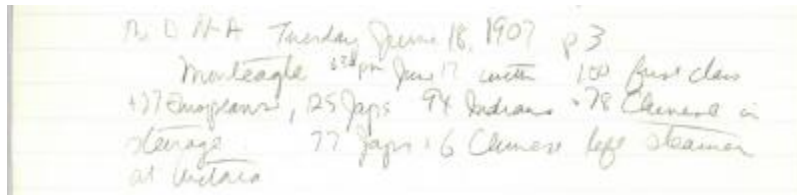 N. D. H-A Tuesday June 18, 1907 p 3
Monteagle 630 pm June 17 with 100 first class
+ 37 Europeans, 125 Japs 94 Indians + 78 Chinese in
steerage 77 Japs + 6 Chinese left steamer
at Victoria